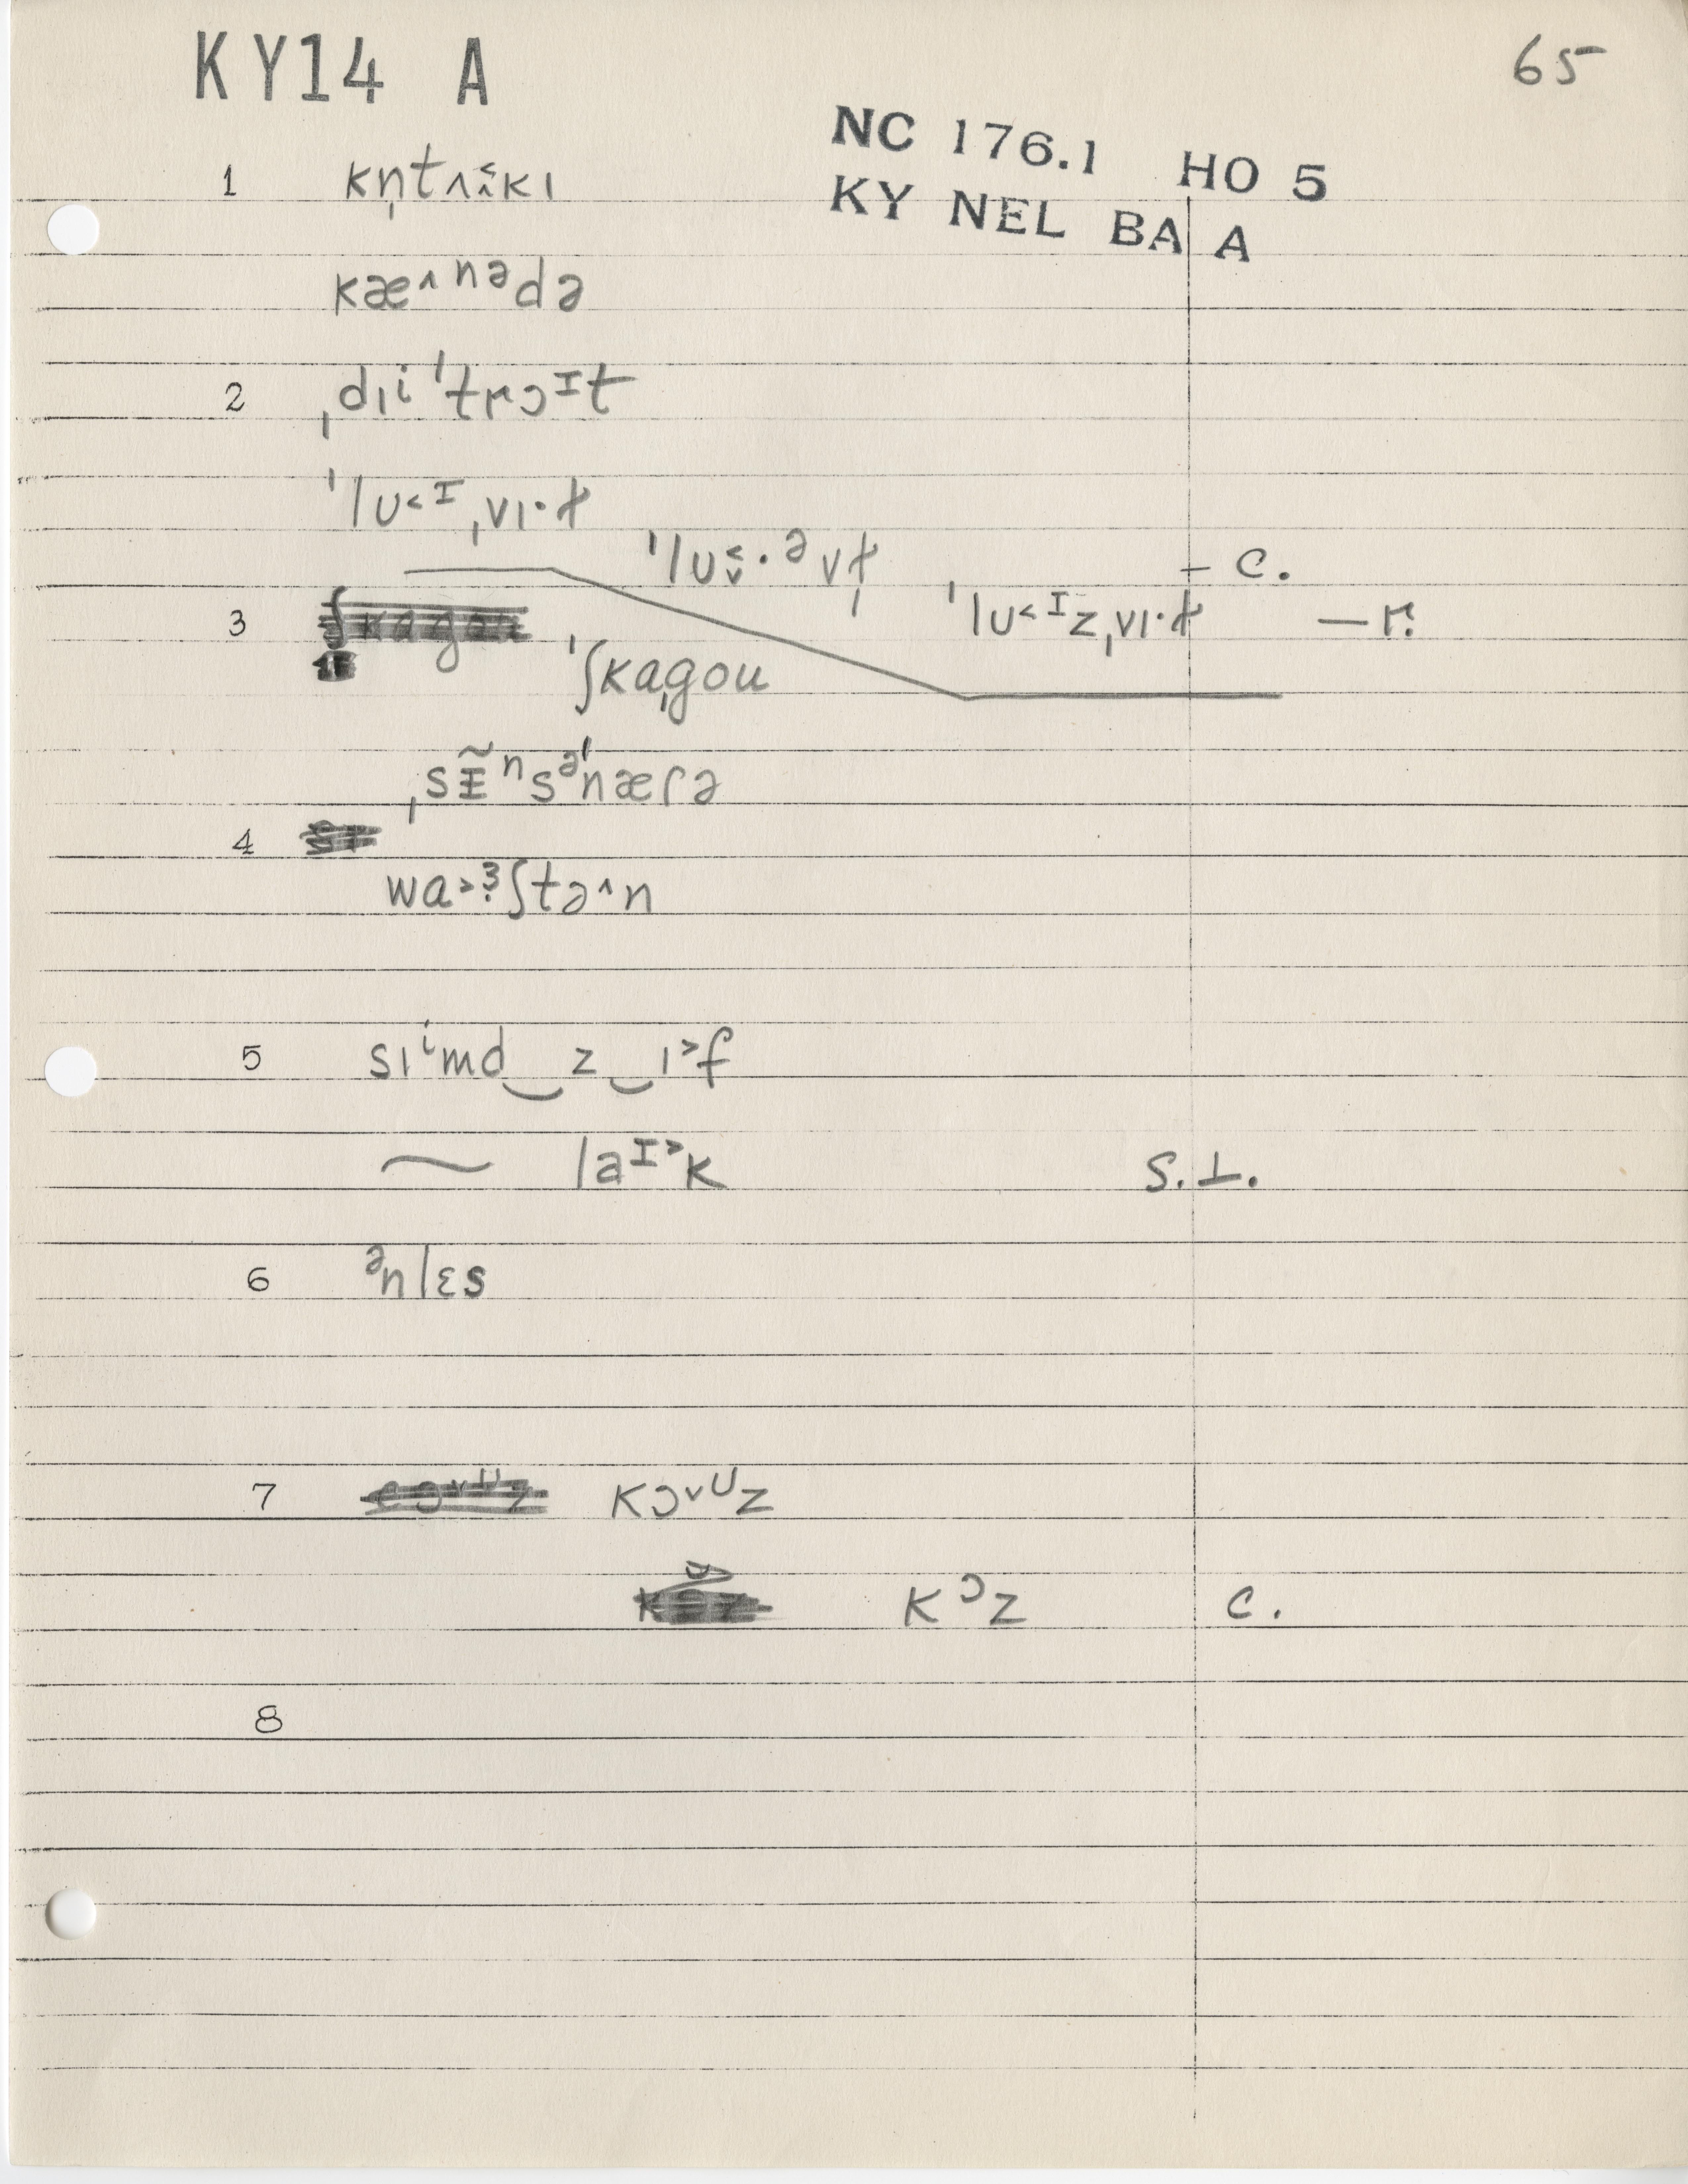 KY14 A
65
NC 176.1 HO 5
KY NEL BA A
1 kn̩tʌɪ̂kɪ
kæ^ⁿᵊdə
2 ˌdɪⁱˈtrɔᴵt
ˈlu˂ᴵˌvɪ·ɫ
ˈlu˯̌·ᵊvɫ̩ – c.
ˈlu˂ᴵzˌvɪ·ɫ – r.
3 ˈʃkaˌgou
ˌsɪ̵̃ⁿsᵊˈnæɾə
4
wa˃ᶾ̣ʃtə^n
5 sɪⁱmd‿z‿ɪ˃f
~ laᴵ˃k s.⊥.
6 ᵊnlɛs
7 kɔ˅ᵁz
kᵓz c.
8